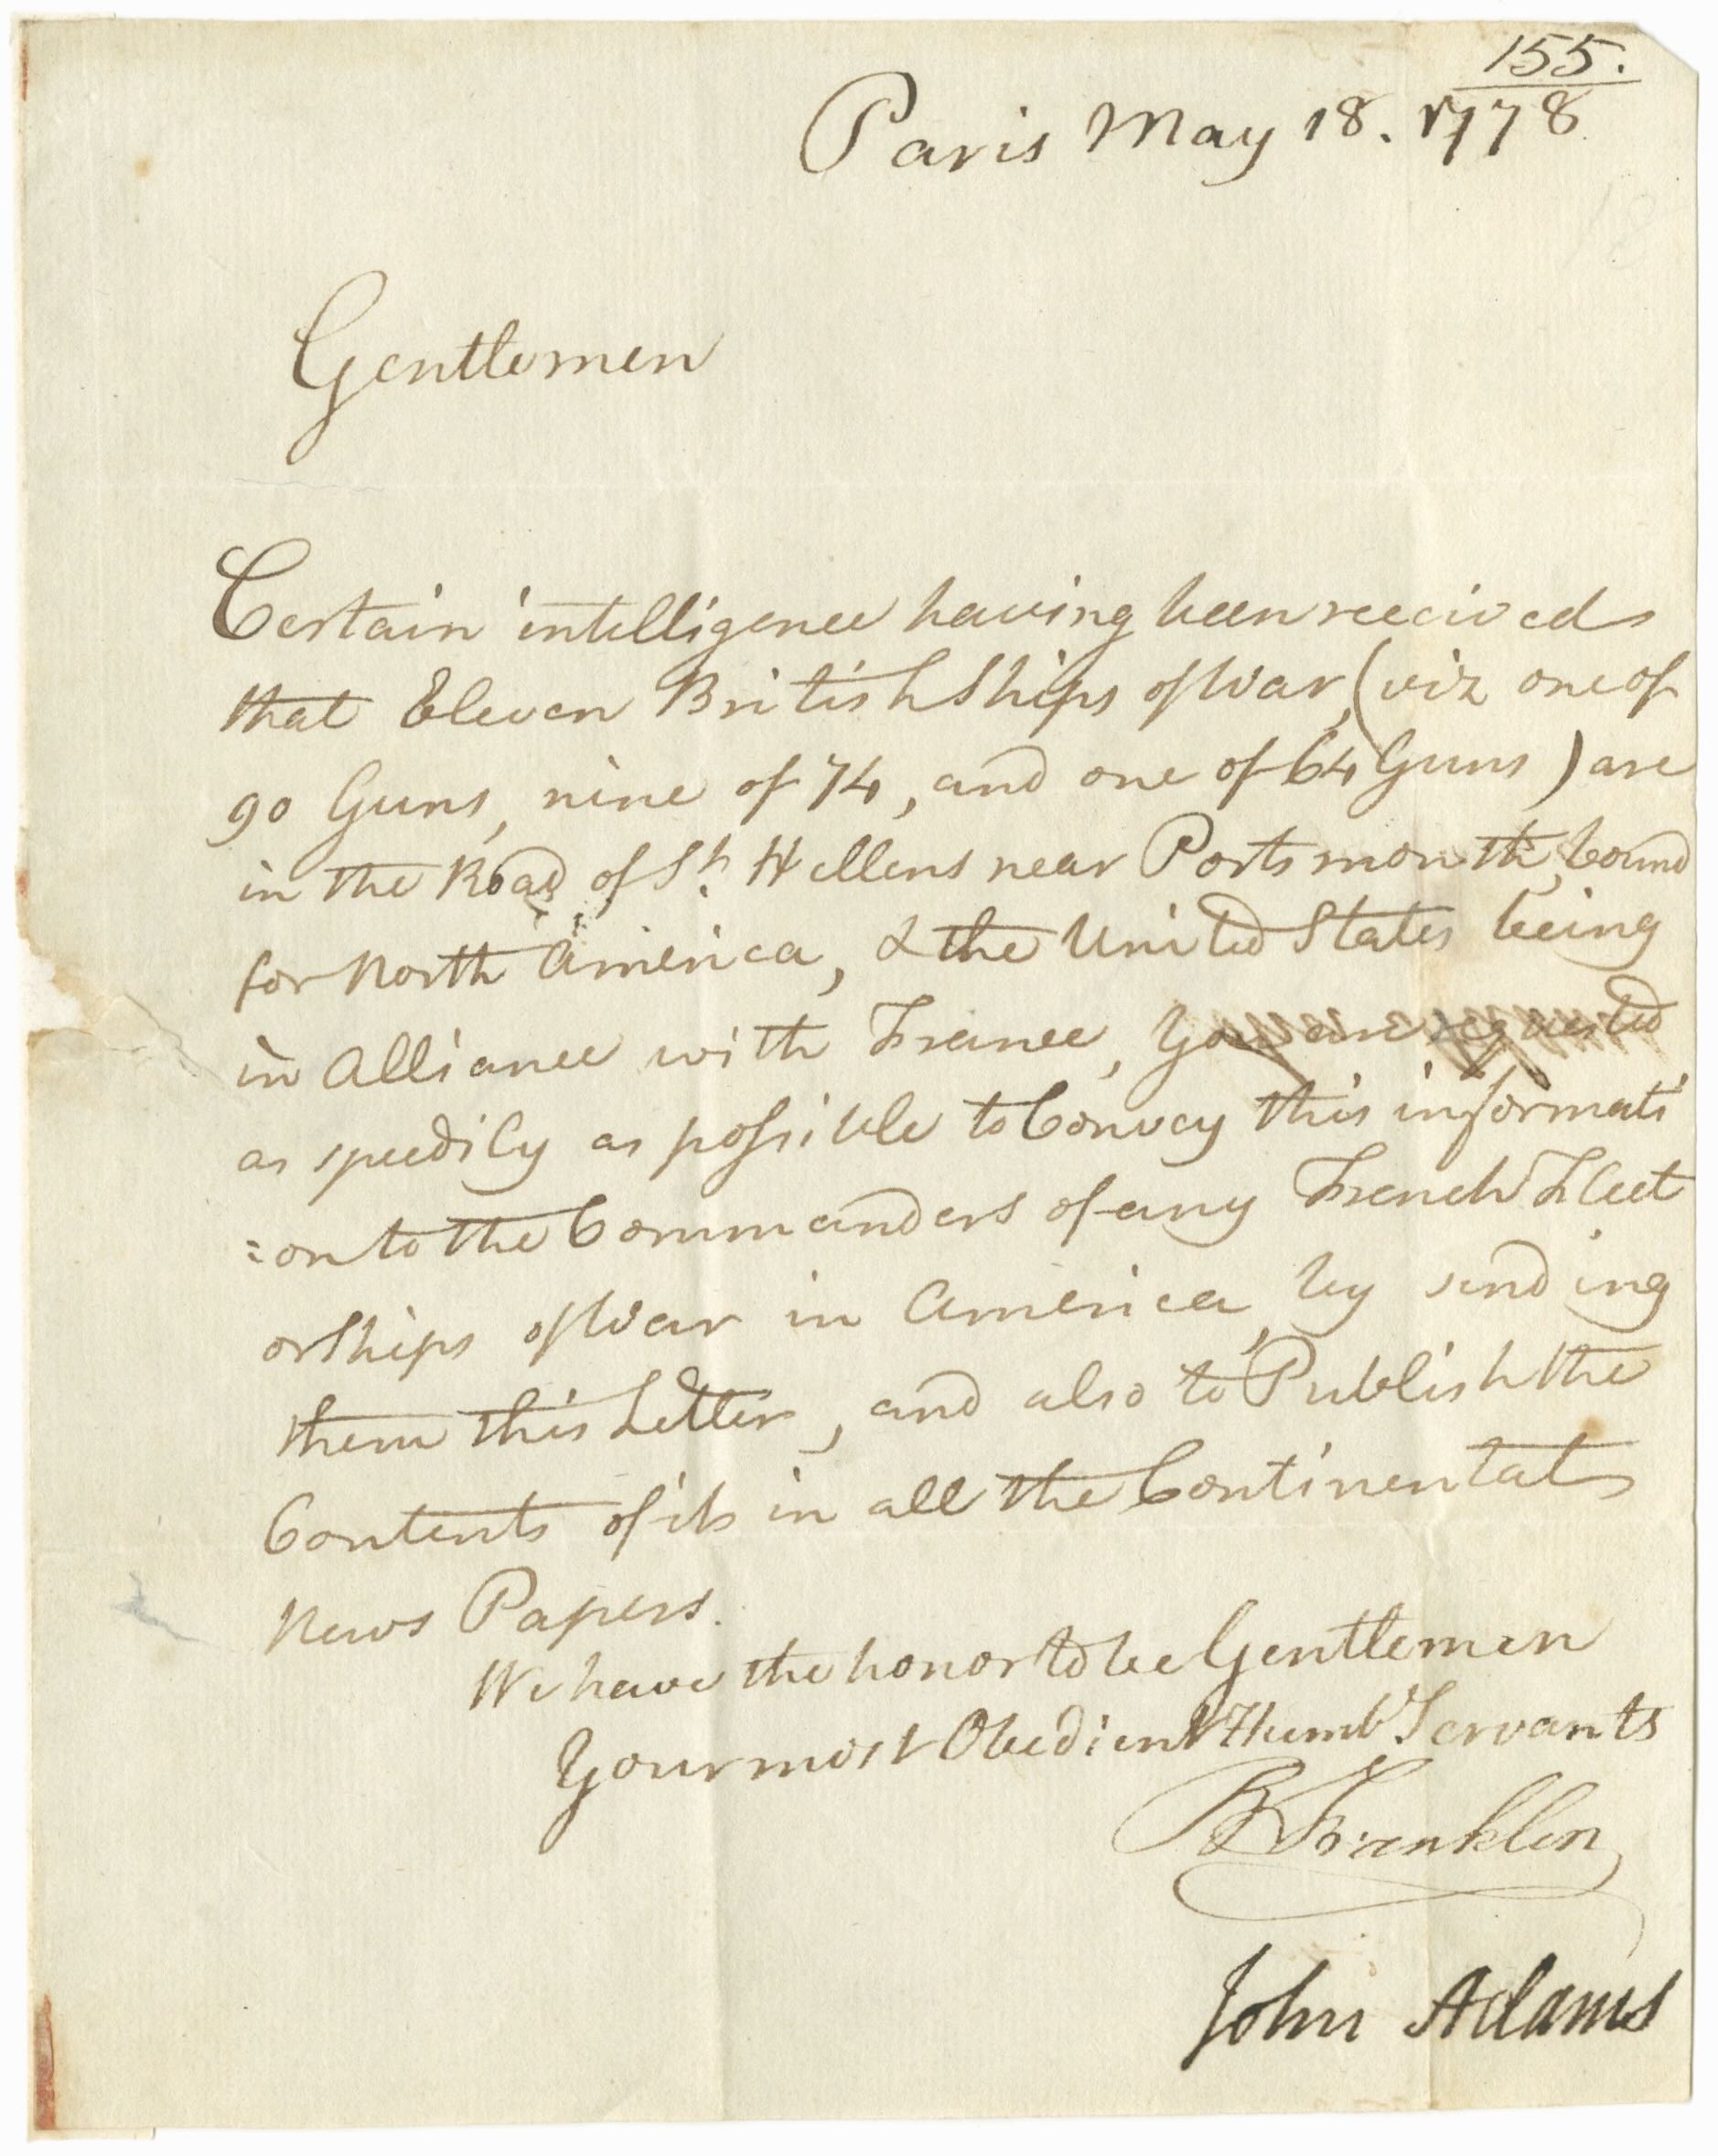 155.
Paris May 18. 1778
Gentlemen
Certain intelligence having been received
that Eleven British Ships of War, (viz one of
90 Guns, nine of 74, and one of 64 Guns) are
in the Road of St. Hellens near Portsmouth, bound
for North America, & the United States being
in Alliance with France, you are requested
as speedily as possible to Convey this informati
=on to the Commanders of any French Fleet
or Ships of War in America, by sending
them this Letter, and also to Publish the
Contents of it in all the Continental
News Papers.
We have the honor to be Gentlemen
Your most Obedient Humb Servants
B Franklin
John Adams